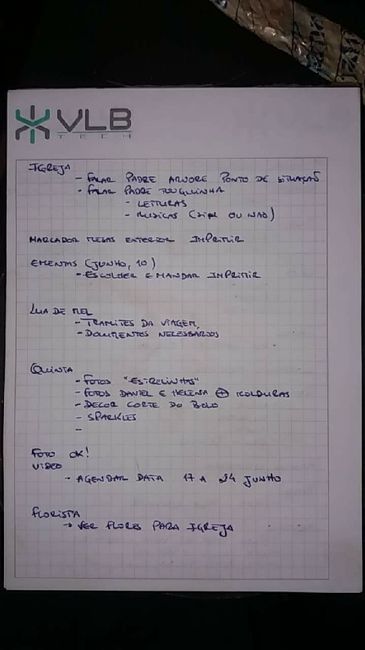 VLB
TECH
IGREJA
- FALAR PADRE ARVORE PONTO DE SITUAÇÃO
- FALAR PADRE TOUGUINHA
- LEITURAS
- MUSICAS (SIM OU NÃO)
MARCADOR MESAS EXTERIOR IMPRIMIR
EMENTAS (JUNHO, 10)
- ESCOLHER E MANDAR IMPRIMIR
LUA DE MEL
- TRAMITES DA VIAGEM,
- DOCUMENTOS NECESSARIOS
QUINTA
- FOTOS "ESTRELINHAS"
- FOTOS DANIEL E HELENA + MOLDURAS
- DECOR CORTE DO BOLO
- SPARKLES
-
FOTO OK!
VIDEO
- AGENDAR DATA 17 A 24 JUNHO
FLORISTA
→ VER FLORES PARA IGREJA